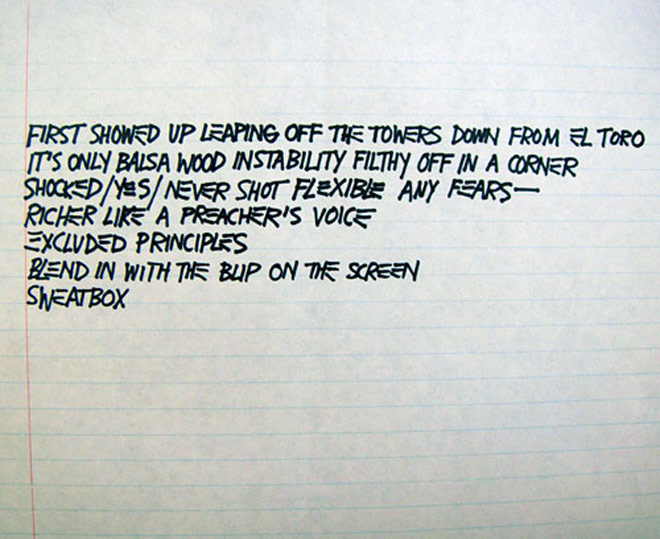 FIRST SHOWED UP LEAPING OFF THE TOWERS DOWN FROM EL TORO
IT'S ONLY BALSA WOOD INSTABILITY FILTHY OFF IN A CORNER
SHOCKED/YES/NEVER SHOT FLEXIBLE ANY FEARS—
RICHER LIKE A PREACHER'S VOICE
EXCLUDED PRINCIPLES
BLEND IN WITH THE BLIP ON THE SCREEN
SWEATBOX